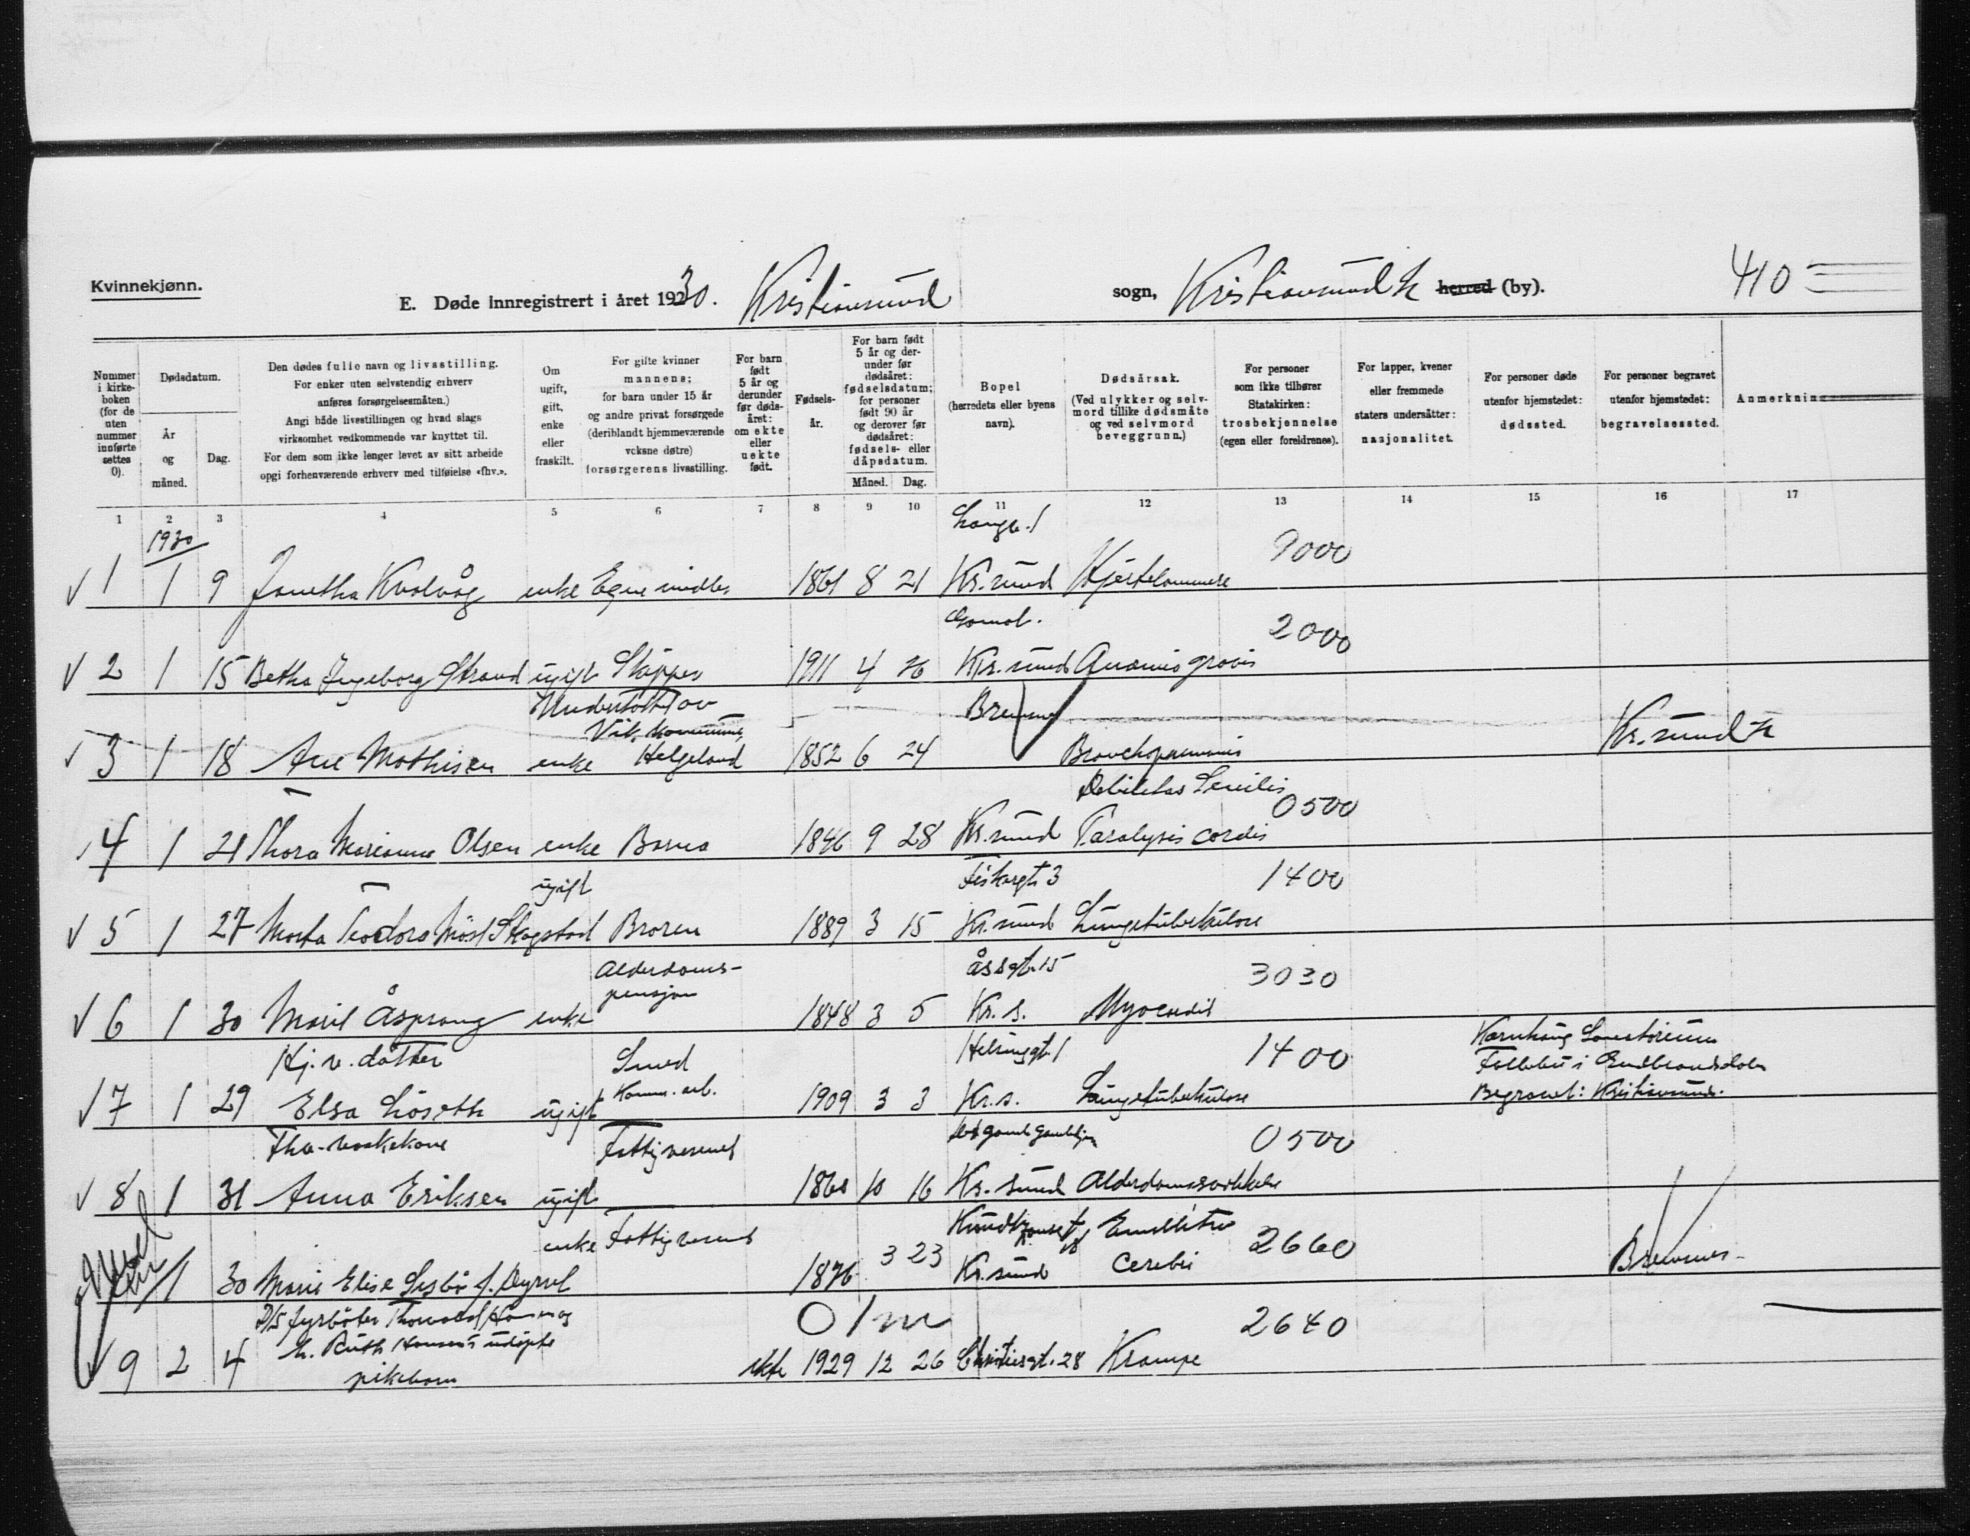 Kvinnekjønn.
E. Døde innregistrert i året 1930. Kristiansund sogn, Kristiansund N herred (by). 410
Nummer i kirkeboken (for de uten nummer innførte settes 0).
Dødsdatum.
År og måned.
Dag.
Den dødes fulle navn og livsstilling.
For enker uten selvstendig erhverv anføres forsørgelsesmåten.)
Angi både livsstillingen og hvad slags virksomhet vedkommende var knyttet til.
For dem som ikke lenger levet av sitt arbeide opgi forhenværende erhverv med tilføielse «fhv.».
Om ugift, gift, enke eller fraskilt.
For gifte kvinner mannens; for barn under 15 år og andre privat forsørgede (deriblandt hjemmeværende voksne døtre) forsørgerens livsstilling.
For barn født 5 år og derunder før dødsåret: om ekte eller uekte født.
Fødselsår.
For barn født 5 år og derunder før dødsåret: fødselsdatum; for personer født 90 år og derover før dødsåret: fødsels- eller dåpsdatum.
Måned. Dag.
Bopel (herredets eller byens navn).
Dødsårsak.
(Ved ulykker og selvmord tillike dødsmåte og ved selvmord beveggrunn.)
For personer som ikke tilhører Statskirken: trosbekjennelse (egen eller foreldrenes).
For lapper, kvener eller fremmede staters undersåtter: nasjonalitet.
For personer døde utenfor hjemstedet: dødssted.
For personer begravet utenfor hjemstedet: begravelsessted.
Anmerkning
1 2 3 4 5 6 7 8 9 10 11 12 13 14 15 16 17
1930
Langv. 1 9000
1 1 9 Janetha Kvalvåg enke Egne midler 1861 8 21 Kr.sund Hjertelammelse
Gomal. 2000
2 1 15 Betha Ingeborg Strand ugift Skipper 1911 4 26 Kr.sund Anæmia gravis
Understøttet av
Vik kommune, Bremsnes
3 1 18 Ane Mathisen enke Helgeland 1852 6 24 Bronchopneumonie Kr.sund N
Debilitas Senilis 0500
4 1 21 Thora Marianne Olsen enke Barna 1846 9 28 Kr.sund Paralysis cordis
ugift Fiskergt 3 1400
5 1 27 Marta Teodora Skogstad Broren 1889 3 15 Kr.sund Lungetuberkulose
Alderdoms-
pensjon Åsgt. 15 3030
6 1 30 Marit Åsprong enke 1848 3 5 Kr. s. Myocardit
Hj. v. datter Smed 1400 Kornhaug Sanatorium
Follebu i Gudbrandsdalen
7 1 29 Elsa Løseth ugift Komm. arb. 1909 3 3 Kr. s. Lungetuberkulose Begravet: Kristiansund.
Fhv. vaskekone Fattigvesenet 0500
8 1 31 Anna Eriksen ugift 10 16 Kr. sund Alderdomssvakkelse
enke Fattigvesenet Embolie 2660
1 30 Marie Elise f. Dyrvik 1876 3 23 Kr.sund Cerebri Bremsnes
D/S fyrbøter Thorvald Hansen og 0 1m 2640
h. Ruth Hansens udøpte
9 2 4 pikebarn ekte 1929 12 26 28 Krampe